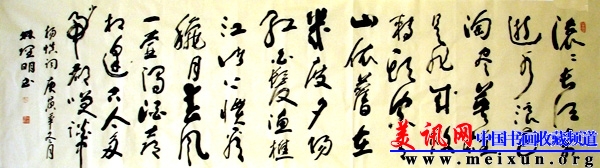 滚々长江东
逝水浪花
淘尽英雄
是非成败
转头空青
山依舊在
幾度夕陽
红白髮渔樵
江渚上惯看
秋月春风
一壶浊酒喜
相逢古今多
少事都付笑谈
中
杨慎词庚寅年
美讯网
中国书画收藏频道
www.meixun.org